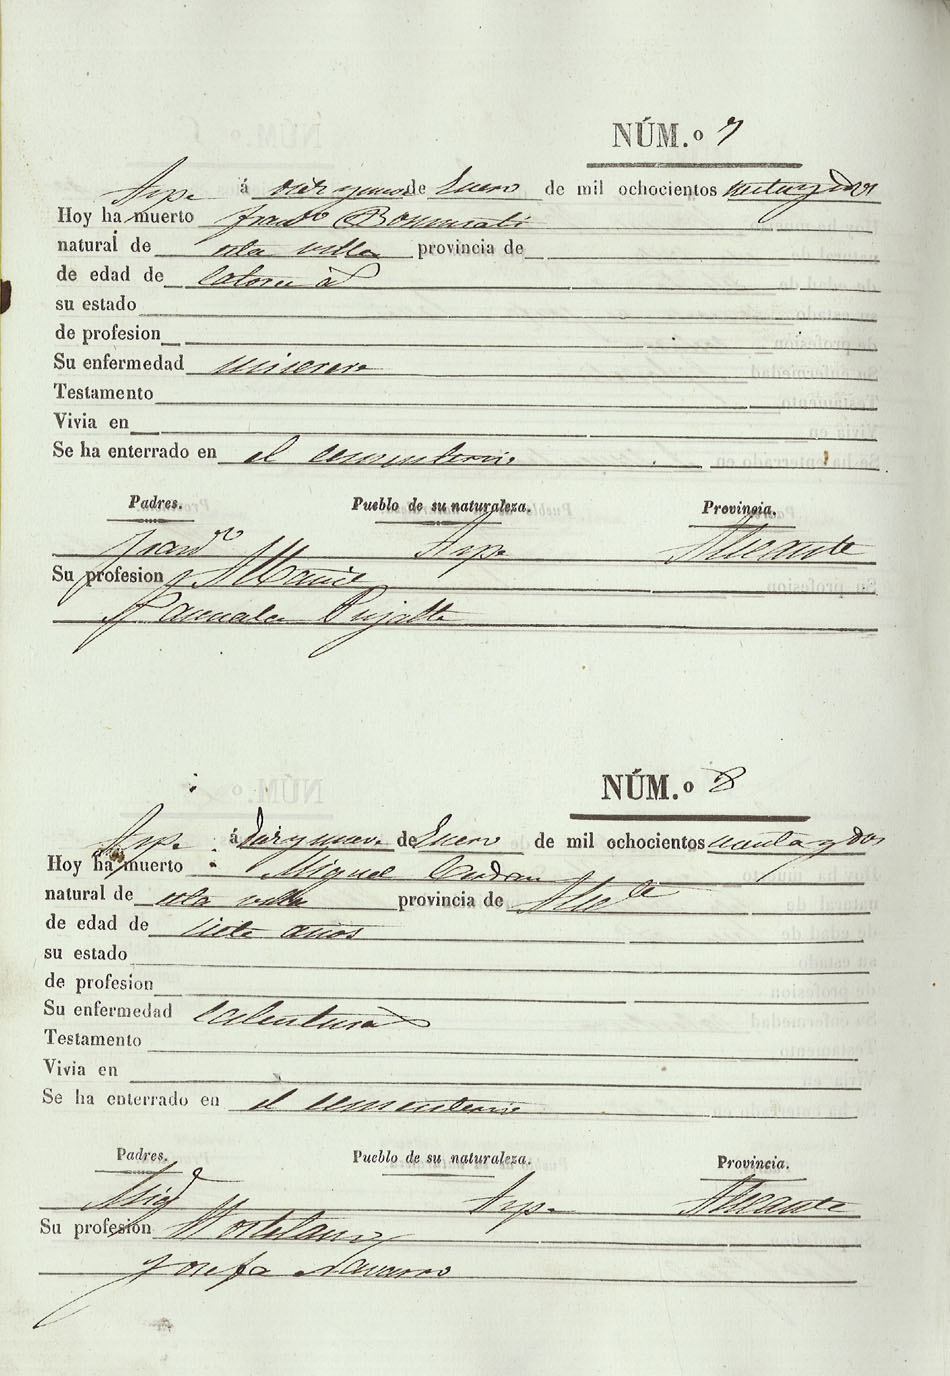 NÚM.º 7
Aspe á diez y nueve de Enero de mil ochocientos setenta y dos
Hoy ha muerto Franco Bonmati
natural de esta villa provincia de
de edad de Catorce as
su estado
de profesion
Su enfermedad miserere
Testamento
Vivia en
Se ha enterrado en el cementerio
Padres. Pueblo de su naturaleza. Provincia.
Franco Aspe Alicante
Su profesion Albañil
Pascuala Pujalte
NÚM.º 8
Aspe á diez y nueve de Enero de mil ochocientos setenta y dos
Hoy ha muerto Miguel
natural de esta villa provincia de Alicte
de edad de siete años
su estado
de profesion
Su enfermedad Calenturas
Testamento
Vivia en
Se ha enterrado en el cementerio
Padres. Pueblo de su naturaleza. Provincia.
Migl Aspe Alicante
Su profesion Hortelano
Josefa Navarro